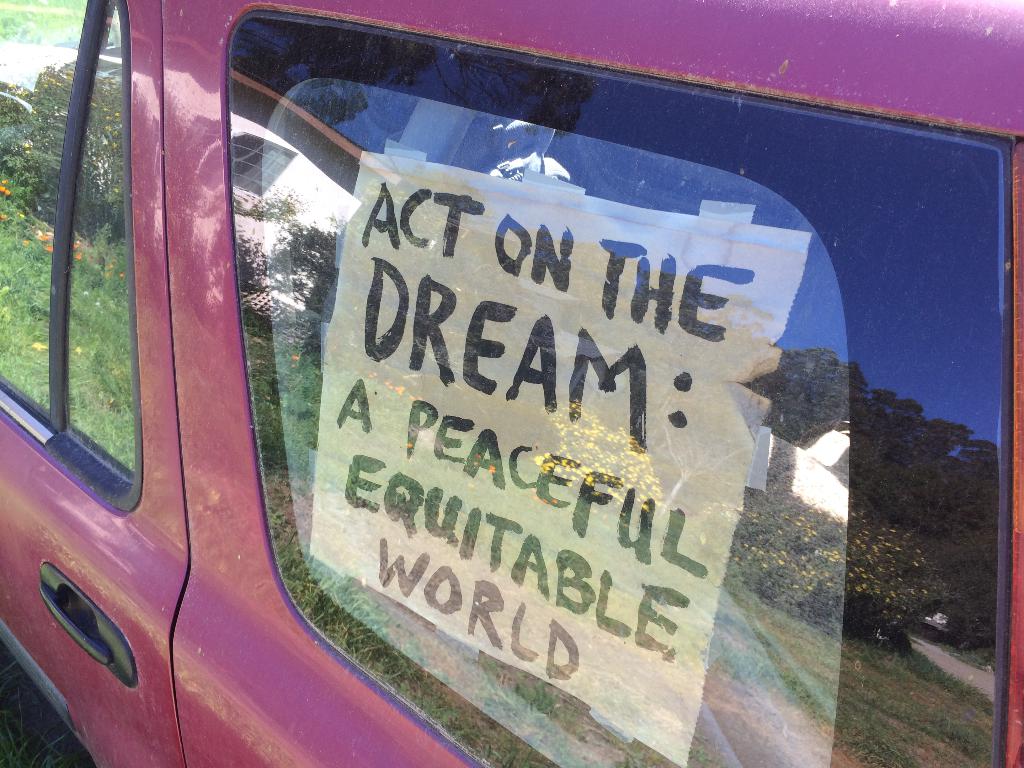 ACT ON THE
DREAM:
A PEACEFUL
EQUITABLE
WORLD